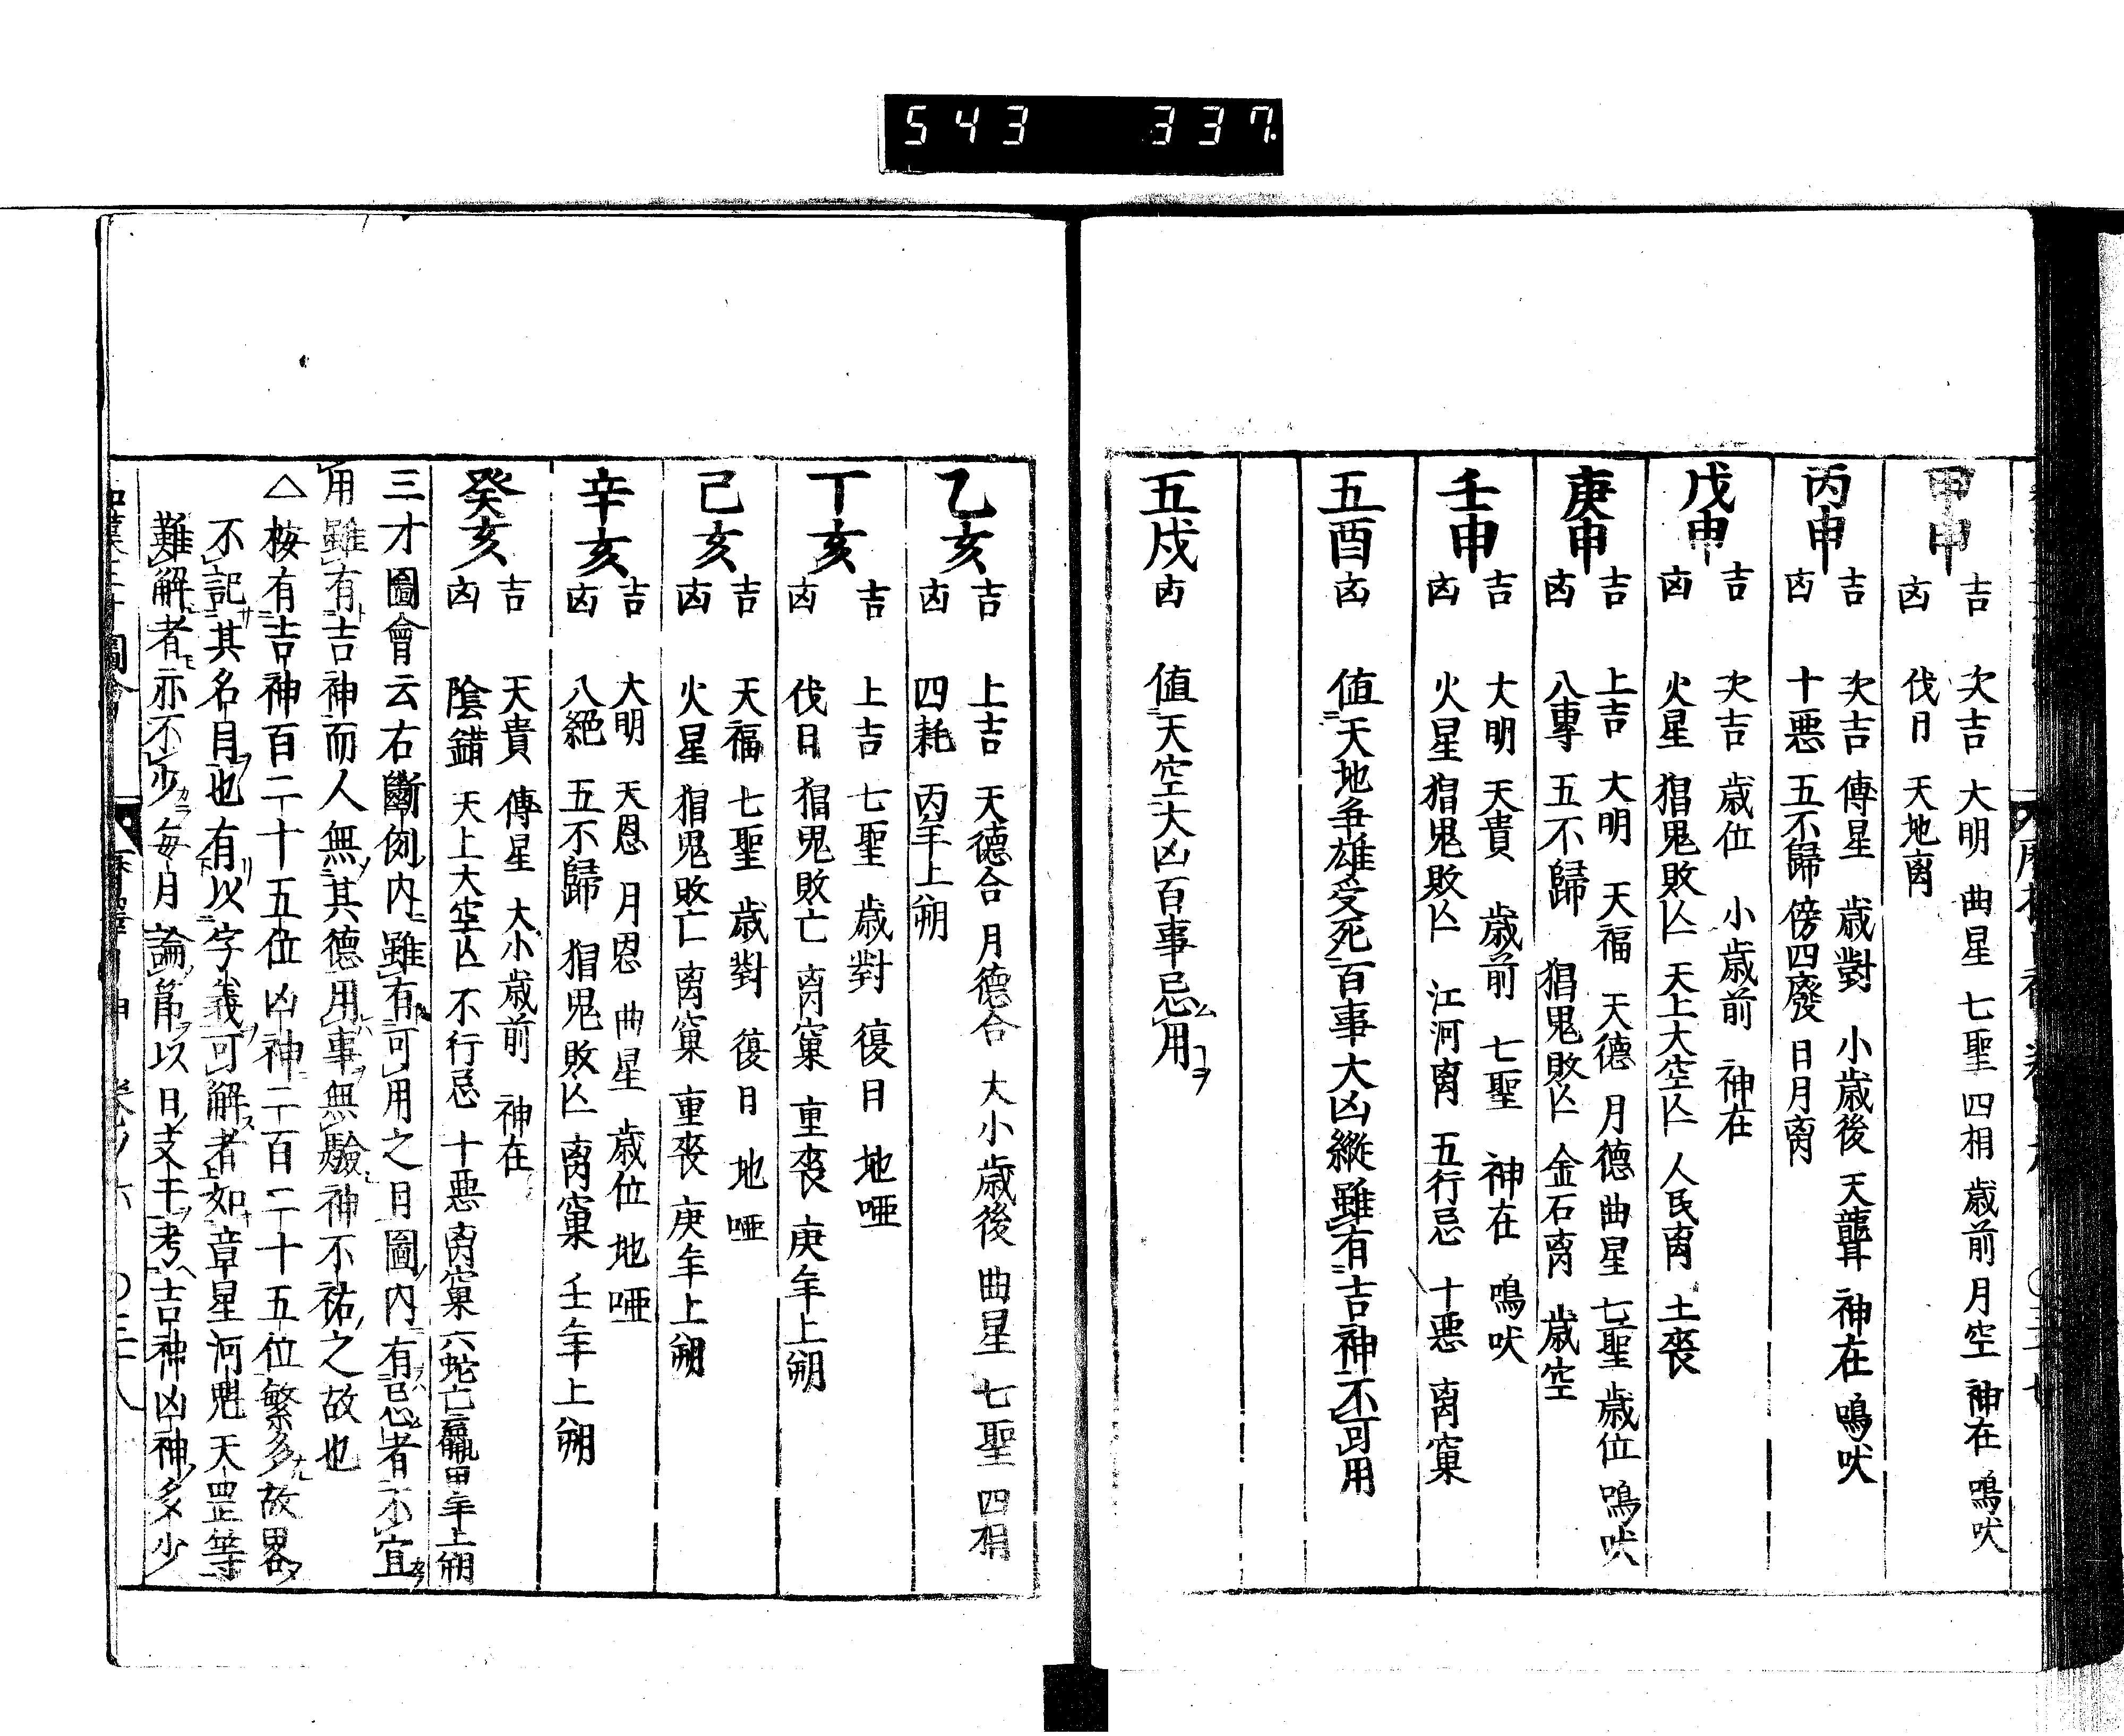 543 337
甲申
吉 次吉 大明 曲星 七聖 四相 歳前 月空 神在 鳴吠
凶 伐日 天地离
丙申
吉 次吉 傳星 歳對 小歳後 天聾 神在 鳴吠
凶 十悪 五不歸 傍四廢 日月离
戊申
吉 次吉 歳位 小歳前 神在
凶 火星 猖鬼敗亾 天上大空亾 人民离 土喪
庚申
吉 上吉 大明 天福 天德 月德 曲星 七聖 歳位 鳴吠
凶 八專 五不歸 猖鬼敗亾 金石离 歳空
壬申
吉 大明 天貴 歳前 七聖 神在 鳴吠
凶 火星 猖鬼敗亾 江河离 五行忌 十悪 离窠
五酉 凶 值二天地争雄受死一百事大凶縱雖レ有二吉神一不レ可レ用
五戍 凶 值二天空一大凶百事忌ムレ用ヿヲ
乙亥
吉 上吉 天德合 月德合 大小歳後 曲星 七聖 四相
凶 四耗 丙年上朔
丁亥
吉 上吉 七聖 歳對 復日 地啞
凶 伐日 猖鬼敗亡 离窠 重喪 庚年上朔
己亥
吉 天福 七聖 歳對 復日 地啞
凶 火星 猖鬼敗亡 离窠 重喪 庚年上朔
辛亥
吉 大明 天恩 月恩 曲星 歳位 地啞
凶 八絕 五不歸 猖鬼敗亾 离窠 壬年上朔
癸亥
吉 天貴 傳星 大小歳前 神在
凶 陰錯 天上大空亾 不行忌 十悪 离窠 六蛇亡羸 甲年上朔
三才圖會云右斷例内雖有可用之日圖内有忌者不宜
用雖有吉神而人無其德用事無驗神不祐之故也
△桉有吉神百二十五位凶神二百二十五位繁多故畧
不記其名目也有以字義可解者如章星河魁天罡等
難解者亦不少毎月論節以日支干考吉神凶神多少